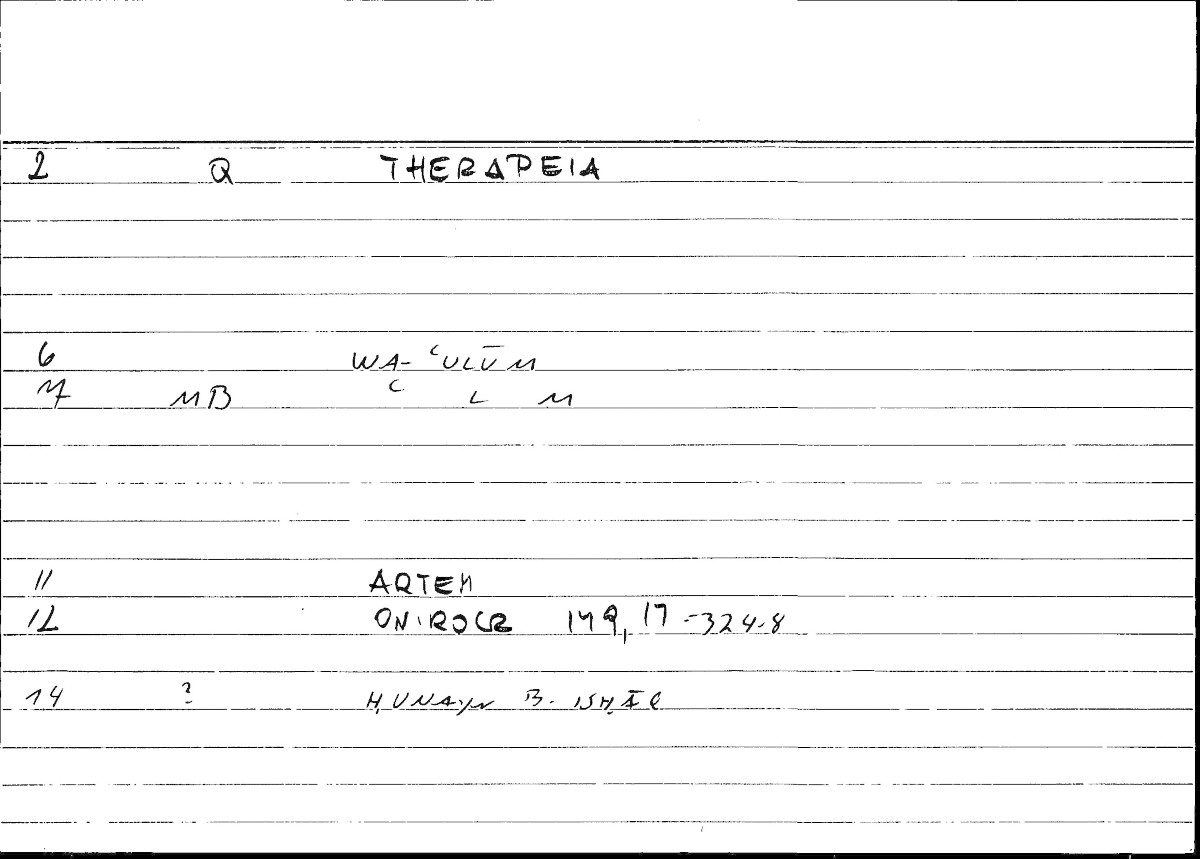 2 Q THERAPEIA
6 WA- ʿULŪM
7 MB ʿ L M
11 ARTEM
12 ONIROCR 149, 17 -324.8
14 ? ḤUNAYN B. ISḤĀQ